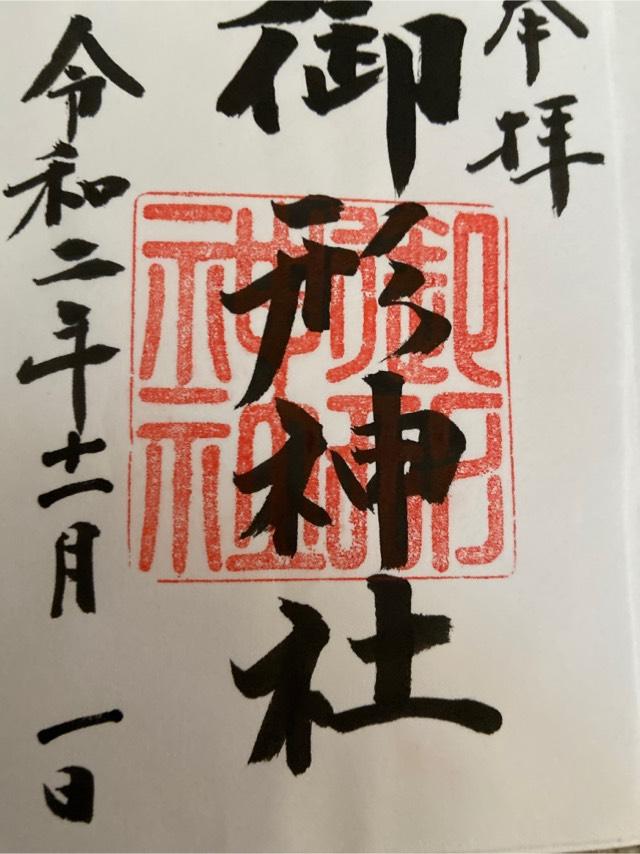 奉拝
御形神社
令和二年十一月 一日